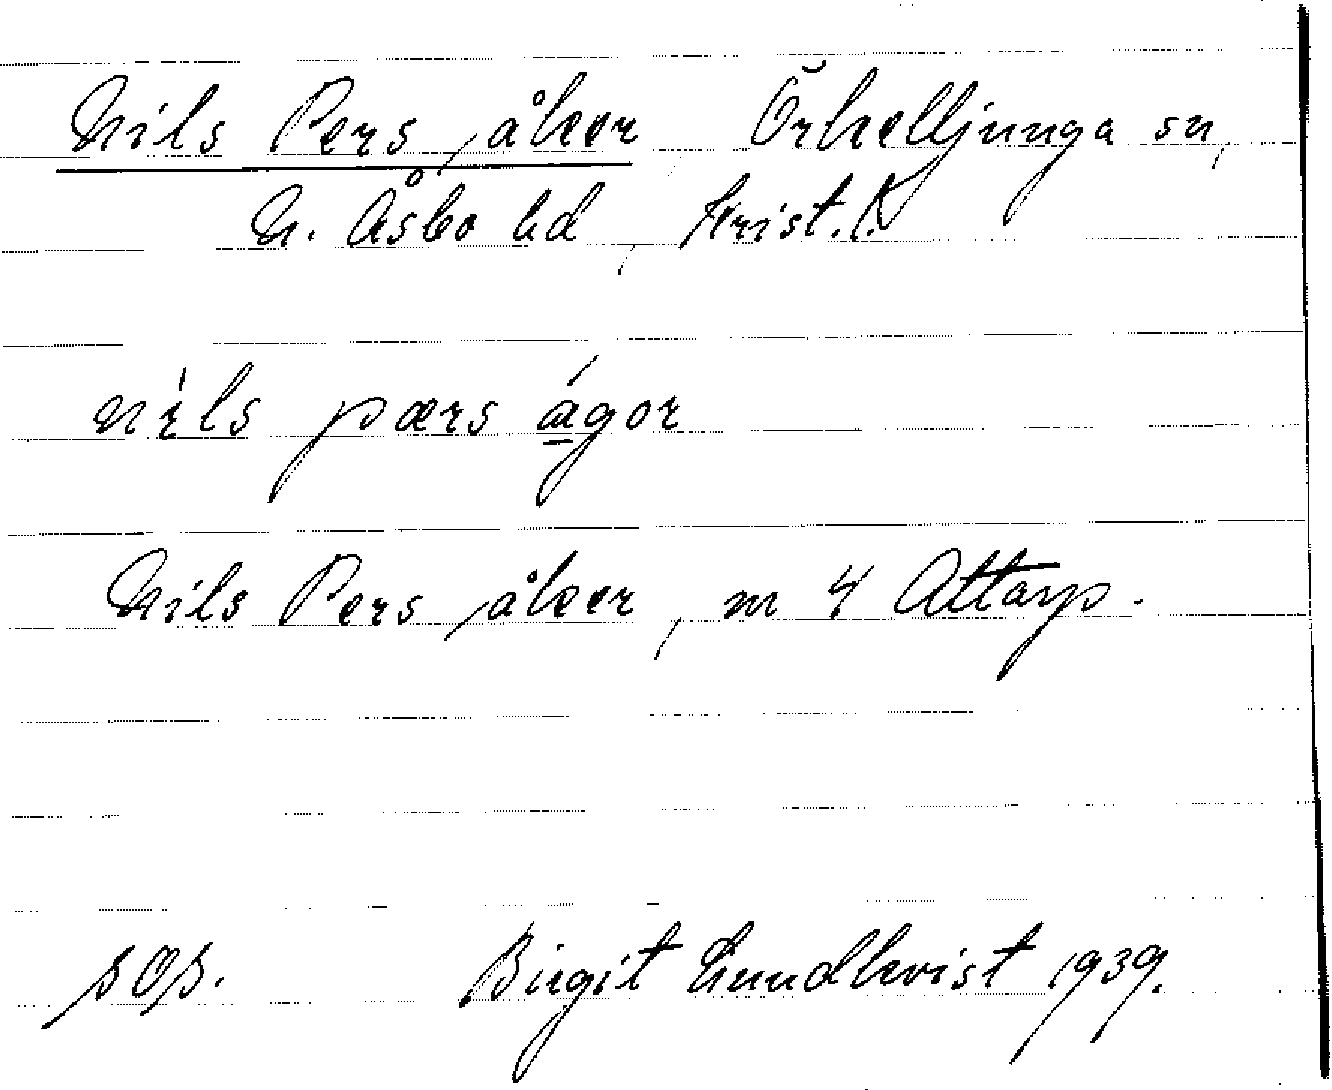 Nils Pers åker, Örkelljunga sn,
N. Åsbo hd, Krist. l.
nils pærs ágor
Nils Pers åker, m 4 Attarp.
sop. Birgit Lundkvist 1939.